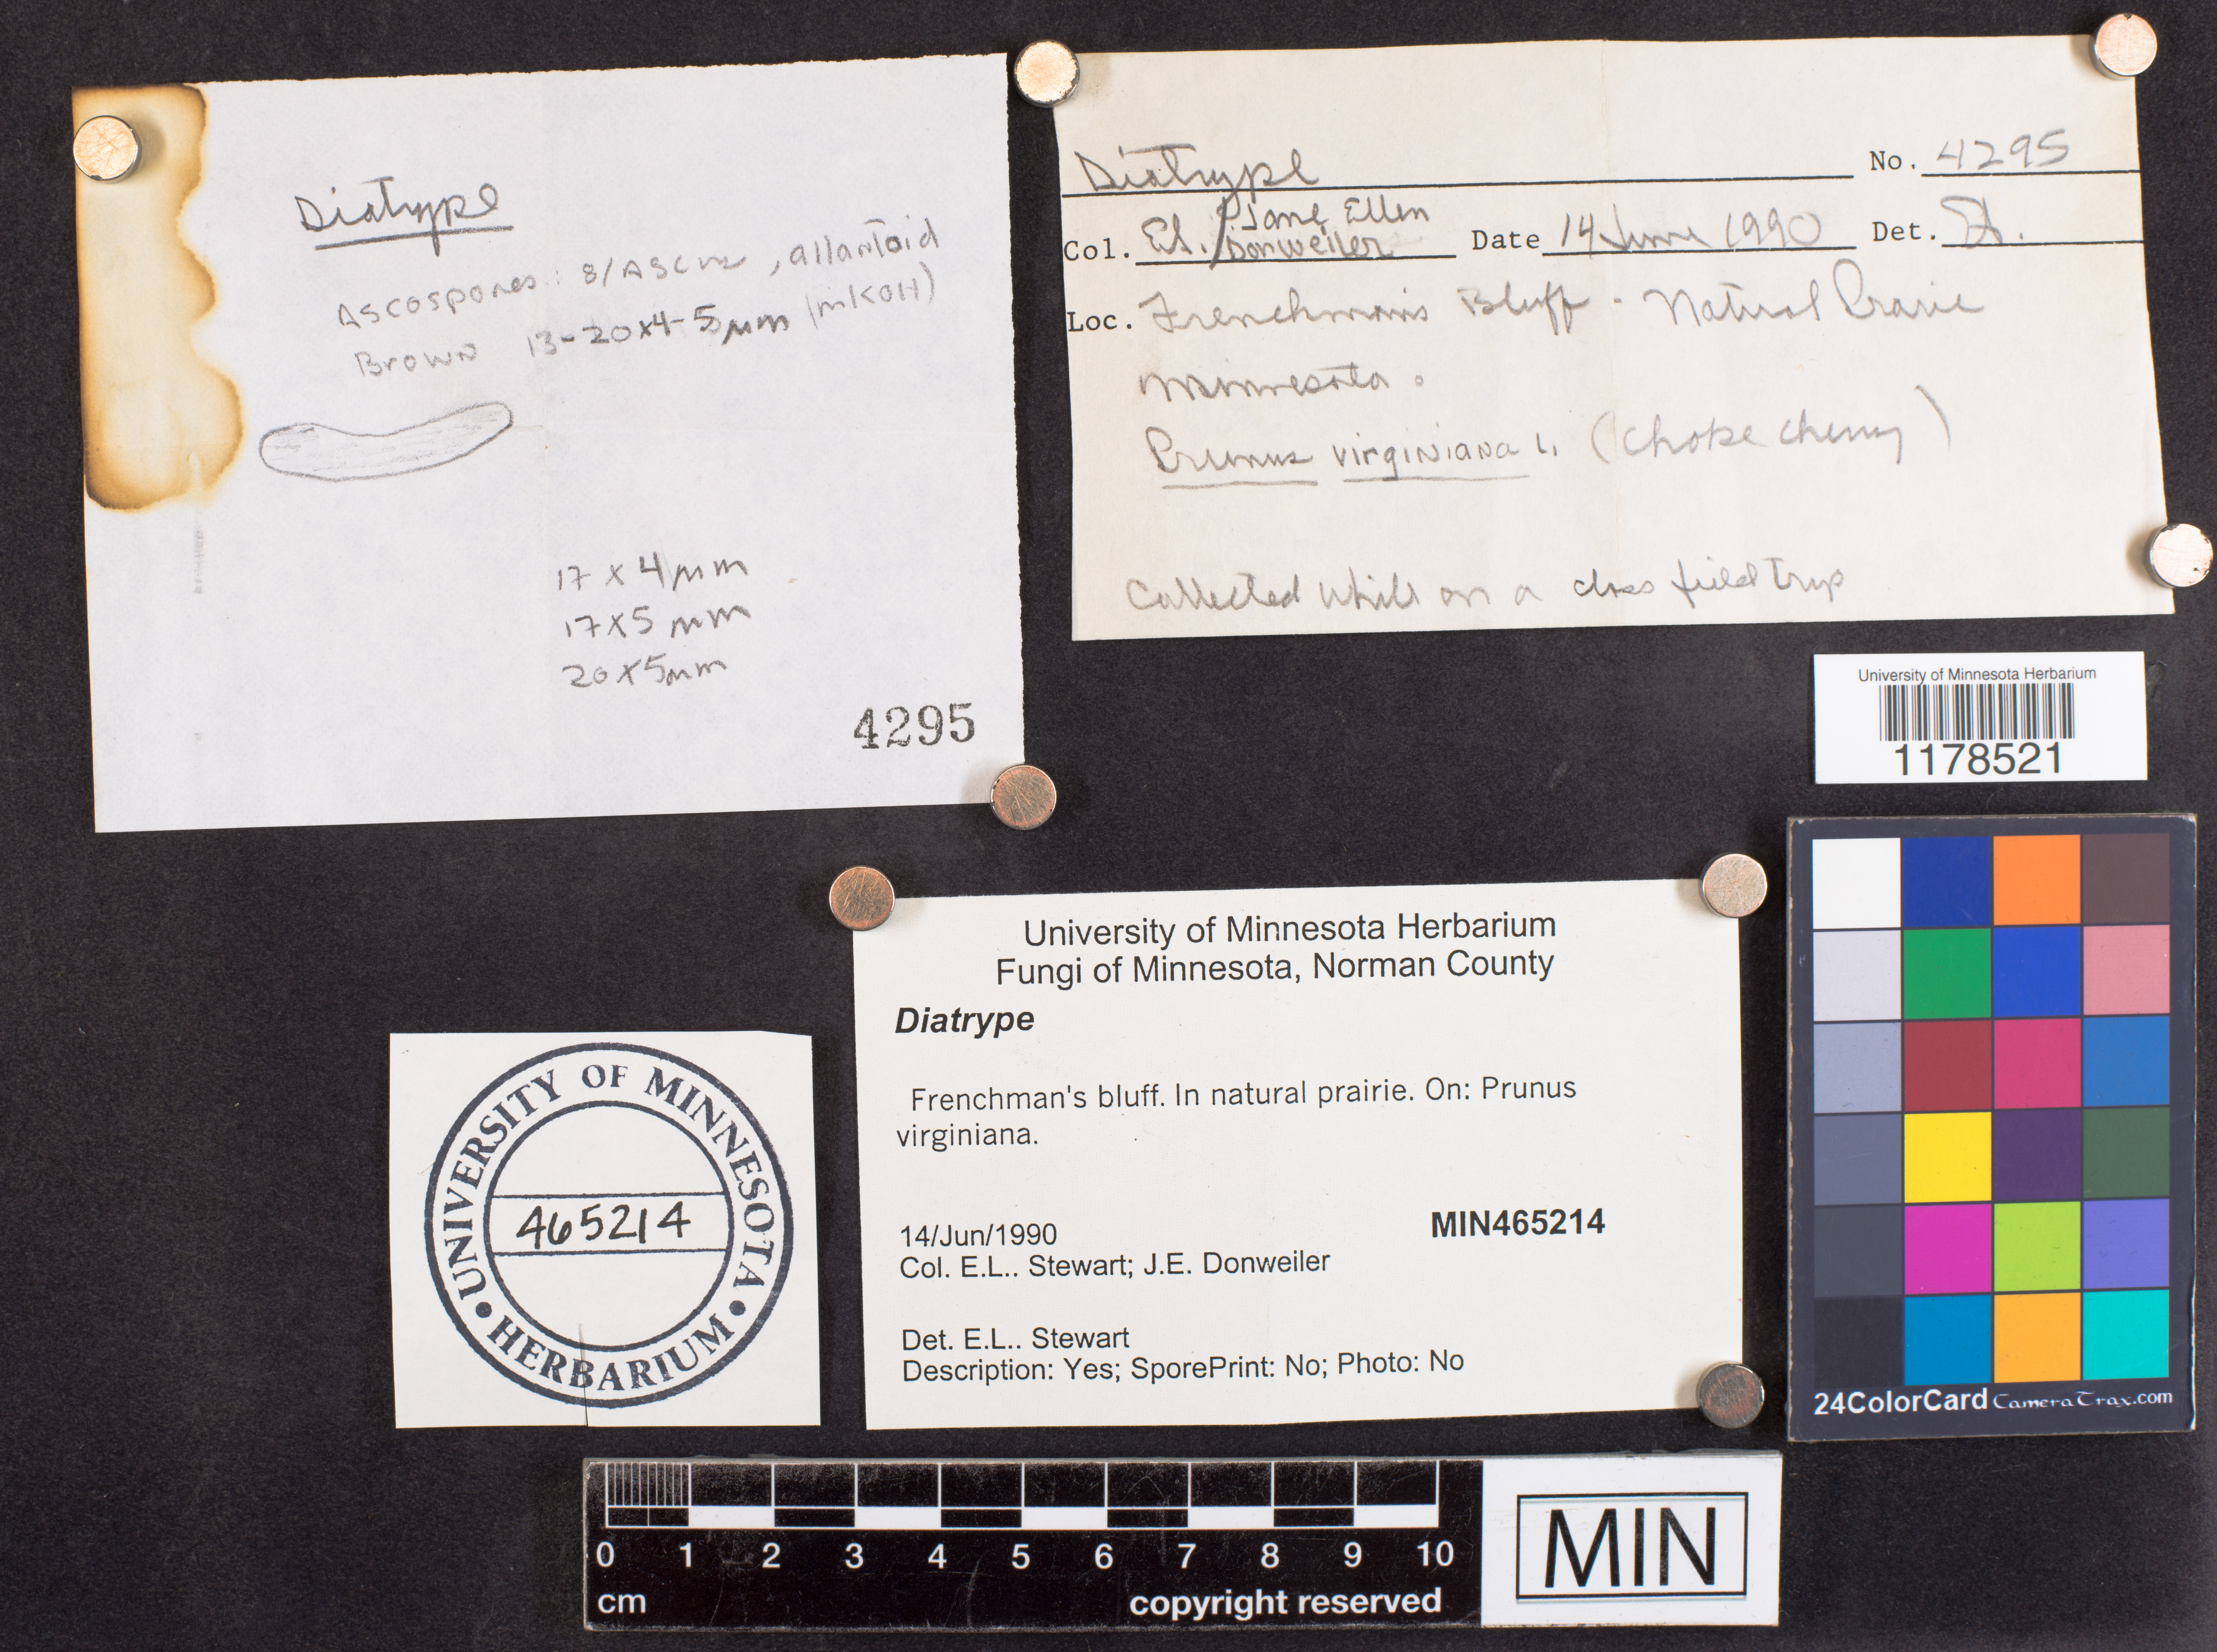 Diatype
Ascospores: 8/Ascus, allantoid
Brown 13-20x4-5µm (in KOH)
17 x 4µm
17x5 µm
20x5µm
4295
Diatrype No. 4295
Col. / Jane Ellen Donweiler Date 14 June 1990 Det.
Loc. Frenchman's Bluff - Natural Prarie
Minnesota.
Prunus virginiana L. (choke cherry)
Collected while on a class field trip
University of Minnesota Herbarium
1178521
University of Minnesota Herbarium
Fungi of Minnesota, Norman County
Diatrype
Frenchman's bluff. In natural prairie. On: Prunus
virginiana.
14/Jun/1990
MIN465214
Col. E.L.. Stewart; J.E. Donweiler
Det. E.L.. Stewart
Description: Yes; SporePrint: No; Photo: No
UNIVERSITY OF MINNESOTA
465214
• HERBARIUM •
24ColorCard CameraTrax.com
0 1 2 3 4 5 6 7 8 9 10
cm copyright reserved
MIN